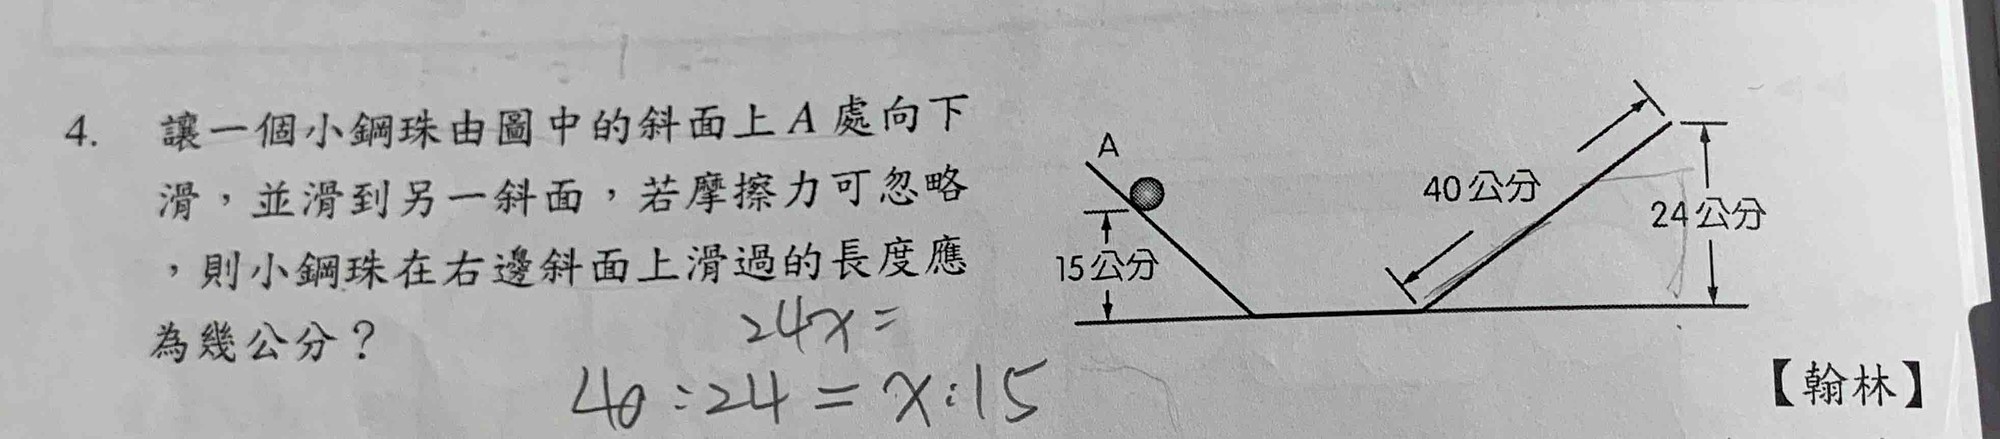 4. 讓一個小鋼珠由圖中的斜面上A處向下
滑，並滑到另一斜面，若摩擦力可忽略
，則小鋼珠在右邊斜面上滑過的長度應
為幾公分？
A
15公分
40公分
24公分
24x=
40:24=x:15
【翰林】